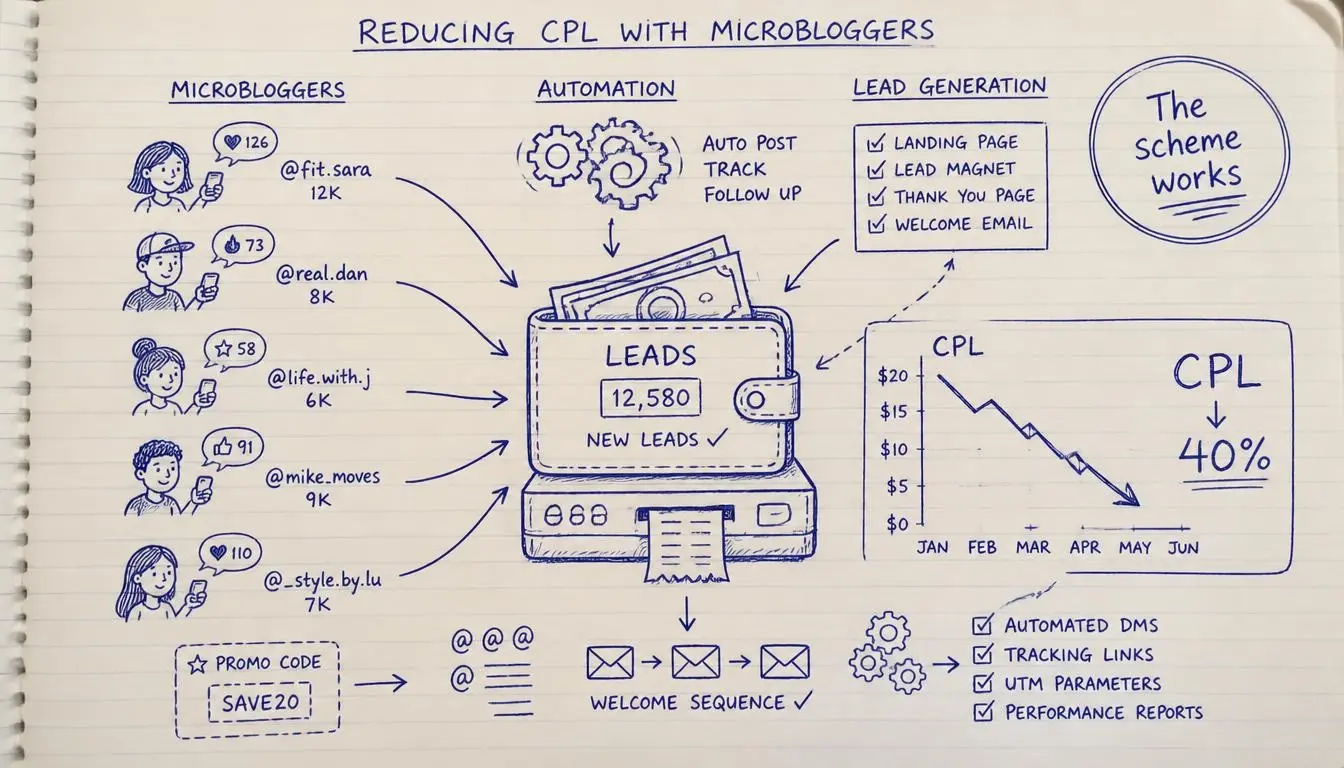 REDUCING CPL WITH MICROBLOGGERS
MICROBLOGGERS
126
@fit.sara
12K
73
@real.dan
8K
58
@life.with.j
6K
91
@mike_moves
9K
110
@_style.by.lu
7K
AUTOMATION
AUTO POST
TRACK
FOLLOW UP
LEAD GENERATION
LANDING PAGE
LEAD MAGNET
THANK YOU PAGE
WELCOME EMAIL
The
scheme
works
LEADS
12,580
NEW LEADS ✓
CPL
$20
$15
$10
$5
$0
JAN FEB MAR APR MAY JUN
CPL
↓
40%
PROMO CODE
SAVE20
@ @ @
@
WELCOME SEQUENCE ✓
AUTOMATED DMS
TRACKING LINKS
UTM PARAMETERS
PERFORMANCE REPORTS